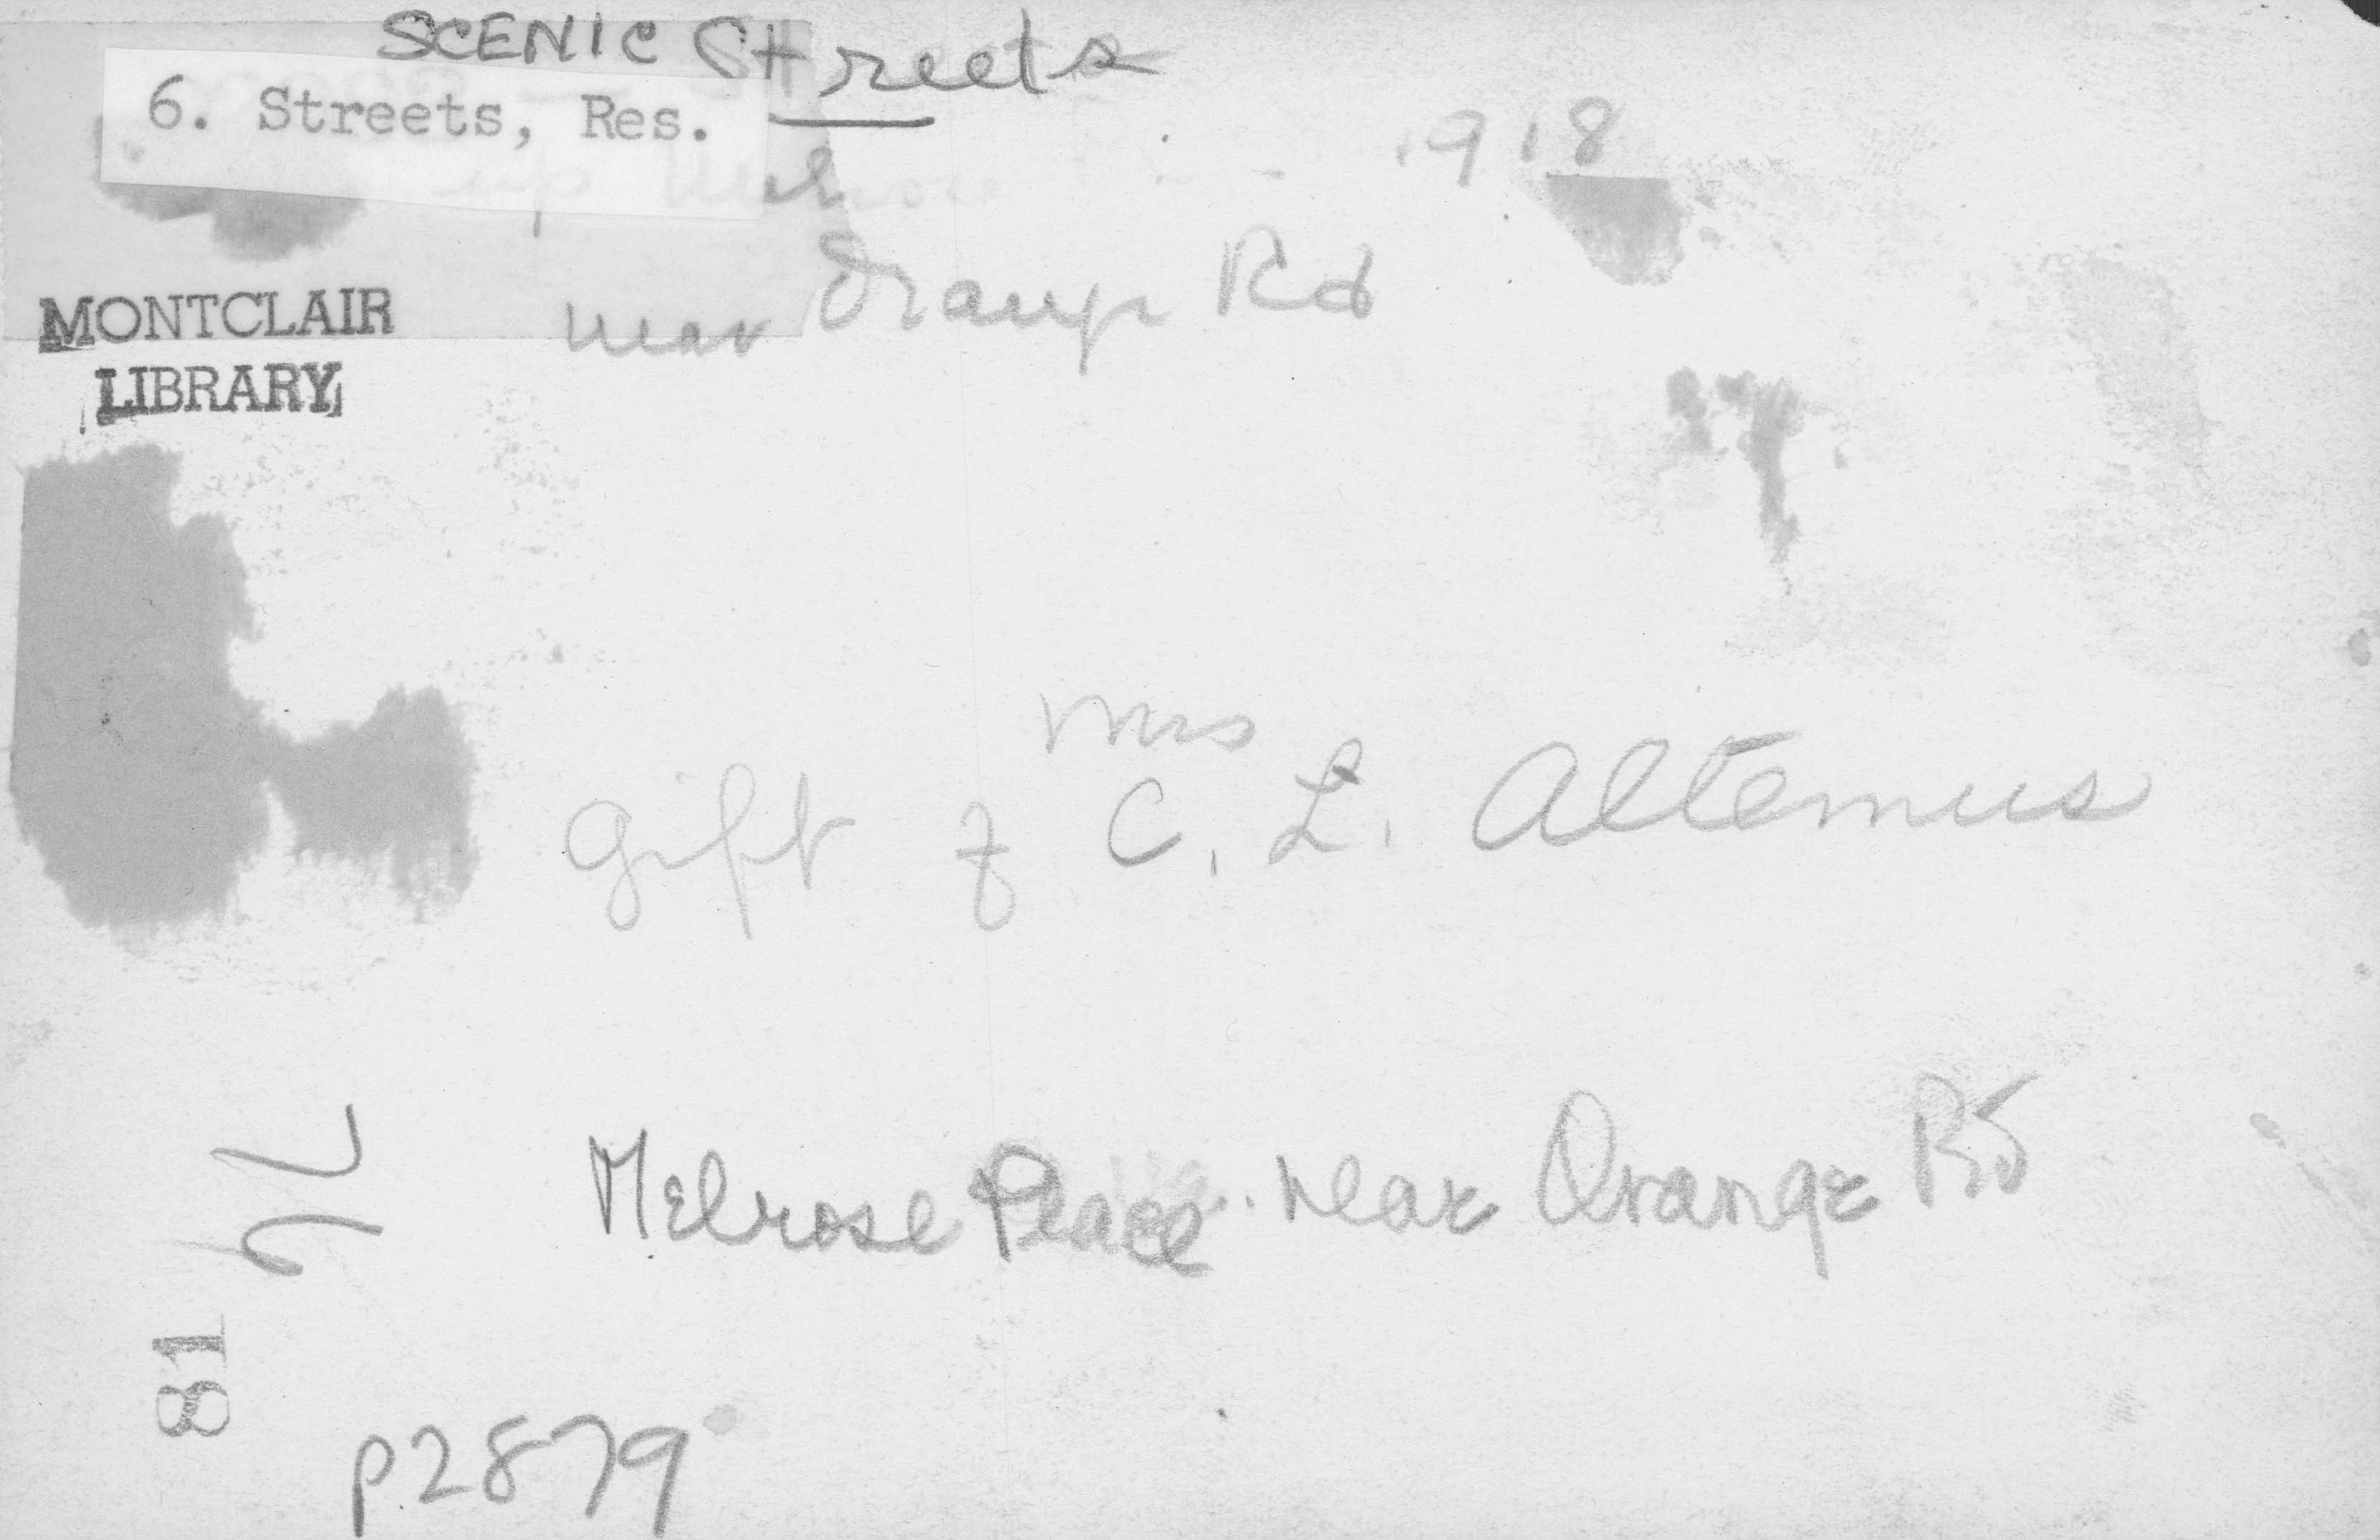 SCENIC Streets
6. Streets, Res.
1918
up Melrose
near Orange Rd
MONTCLAIR
LIBRARY
Mrs
Gift of C. L. Altemus
Melrose Place. Near Orange Rd
81
p2879